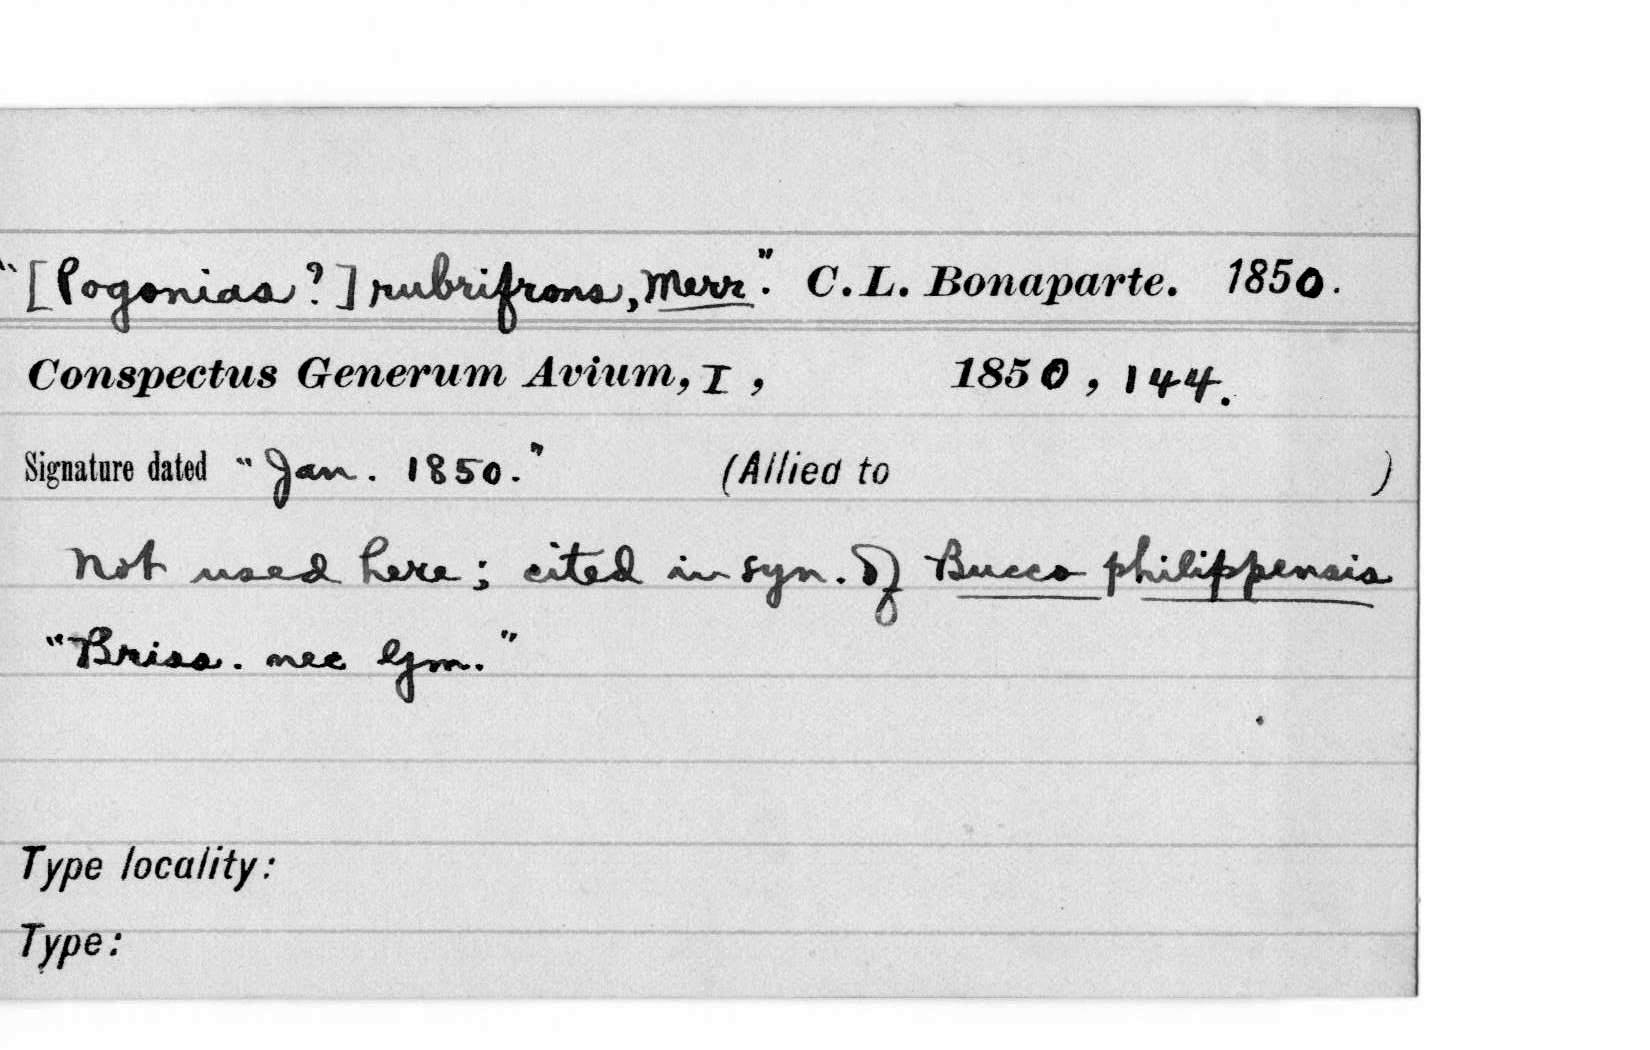 "[Pogonias?] rubrifrons, Merr". C. L. Bonaparte. 1850.
Conspectus Generum Avium, I, 1850, 144.
Signature dated "Jan. 1850." (Allied to )
Not used here; cited in syn. of Bucco philippensis
"Briss. nec Gm."
Type locality:
Type: